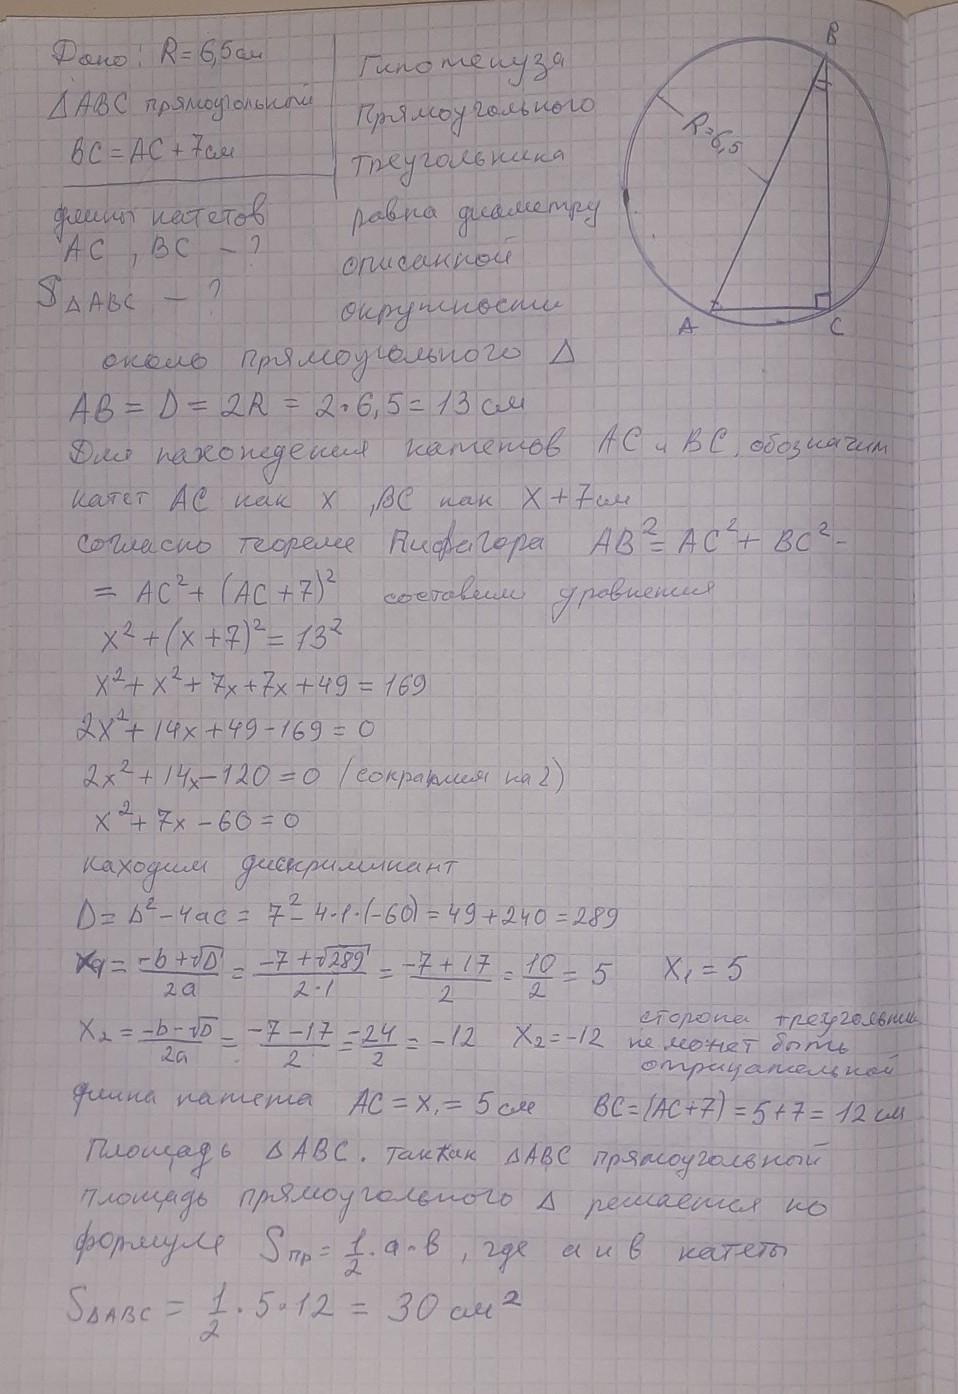 Дано: R = 6,5 см
Δ ABC прямоугольный
BC = AC + 7 см
длины катетов
AC , BC - ?
S Δ ABC - ?
Гипотенуза
Прямоугольного
треугольника
равна диаметру
описанной
окружности
B
R=6,5
A
C
около прямоугольного Δ
AB = D = 2R = 2·6,5 = 13 см
Для нахождения катетов AC и BC, обозначим
катет AC как x , BC как X + 7 см
согласно теореме Пифагора AB² = AC² + BC² =
= AC² + (AC + 7)² составим уравнения
x² + (x + 7)² = 13²
x² + x² + 7x + 7x + 49 = 169
2x² + 14x + 49 - 169 = 0
2x² + 14x - 120 = 0 (сократим на 2)
x² + 7x - 60 = 0
находим дискриминант
D = b² - 4ac = 7² - 4·1·(-60) = 49 + 240 = 289
X₁ = (-b + √D)/2a = (-7 + √289)/2·1 = (-7 + 17)/2 = 10/2 = 5 X₁ = 5
X₂ = (-b - √D)/2a = (-7 - 17)/2 = -24/2 = -12 X₂ = -12
сторона треугольник
не может быть
отрицательной
длина катета AC = X₁ = 5 см BC = (AC + 7) = 5 + 7 = 12 см
Площадь Δ ABC. так как Δ ABC прямоугольный
площадь прямоугольного Δ решается по
формуле Sпр = 1/2 · a · b , где a и b катеты
SΔABC = 1/2 · 5 · 12 = 30 см²